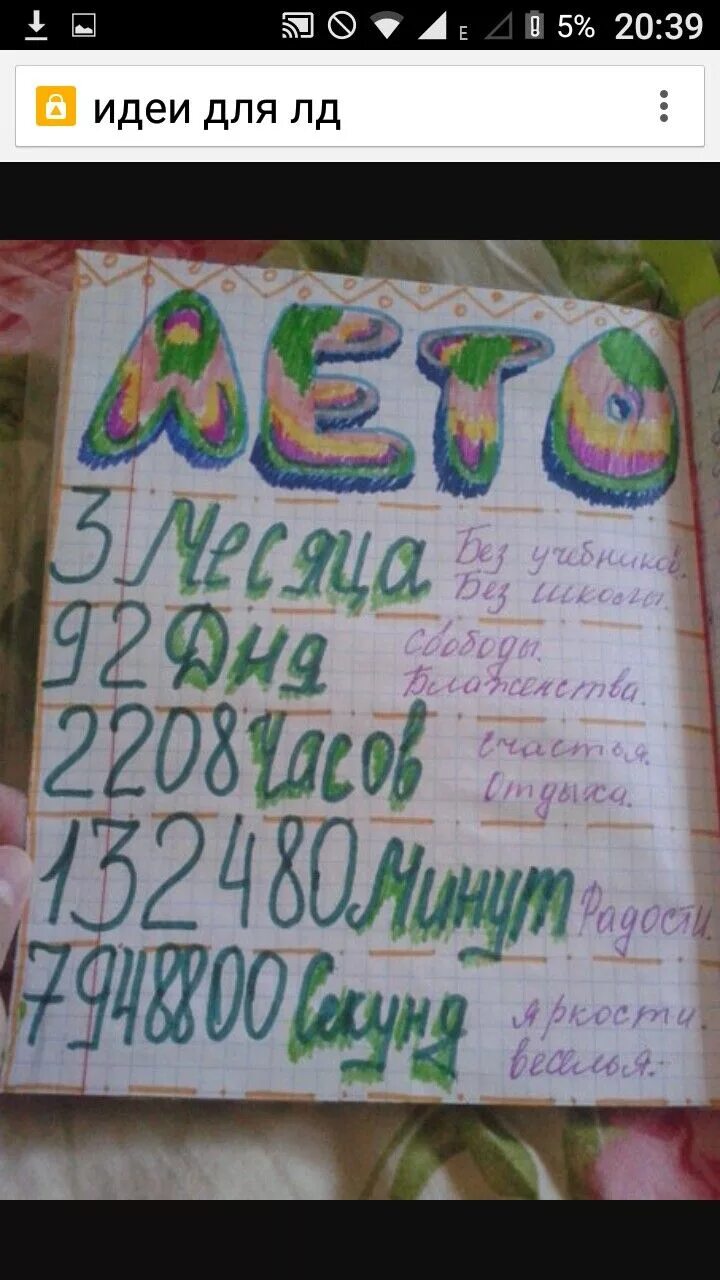 E 5% 20:39
идеи для лд
ЛЕТО
3 Месяца Без учебников.
Без школы.
92 Дня Свободы.
Блаженства.
2208 Часов Счастья.
Отдыха.
132480 Минут Радости.
7948800 Секунд Яркости.
Веселья.